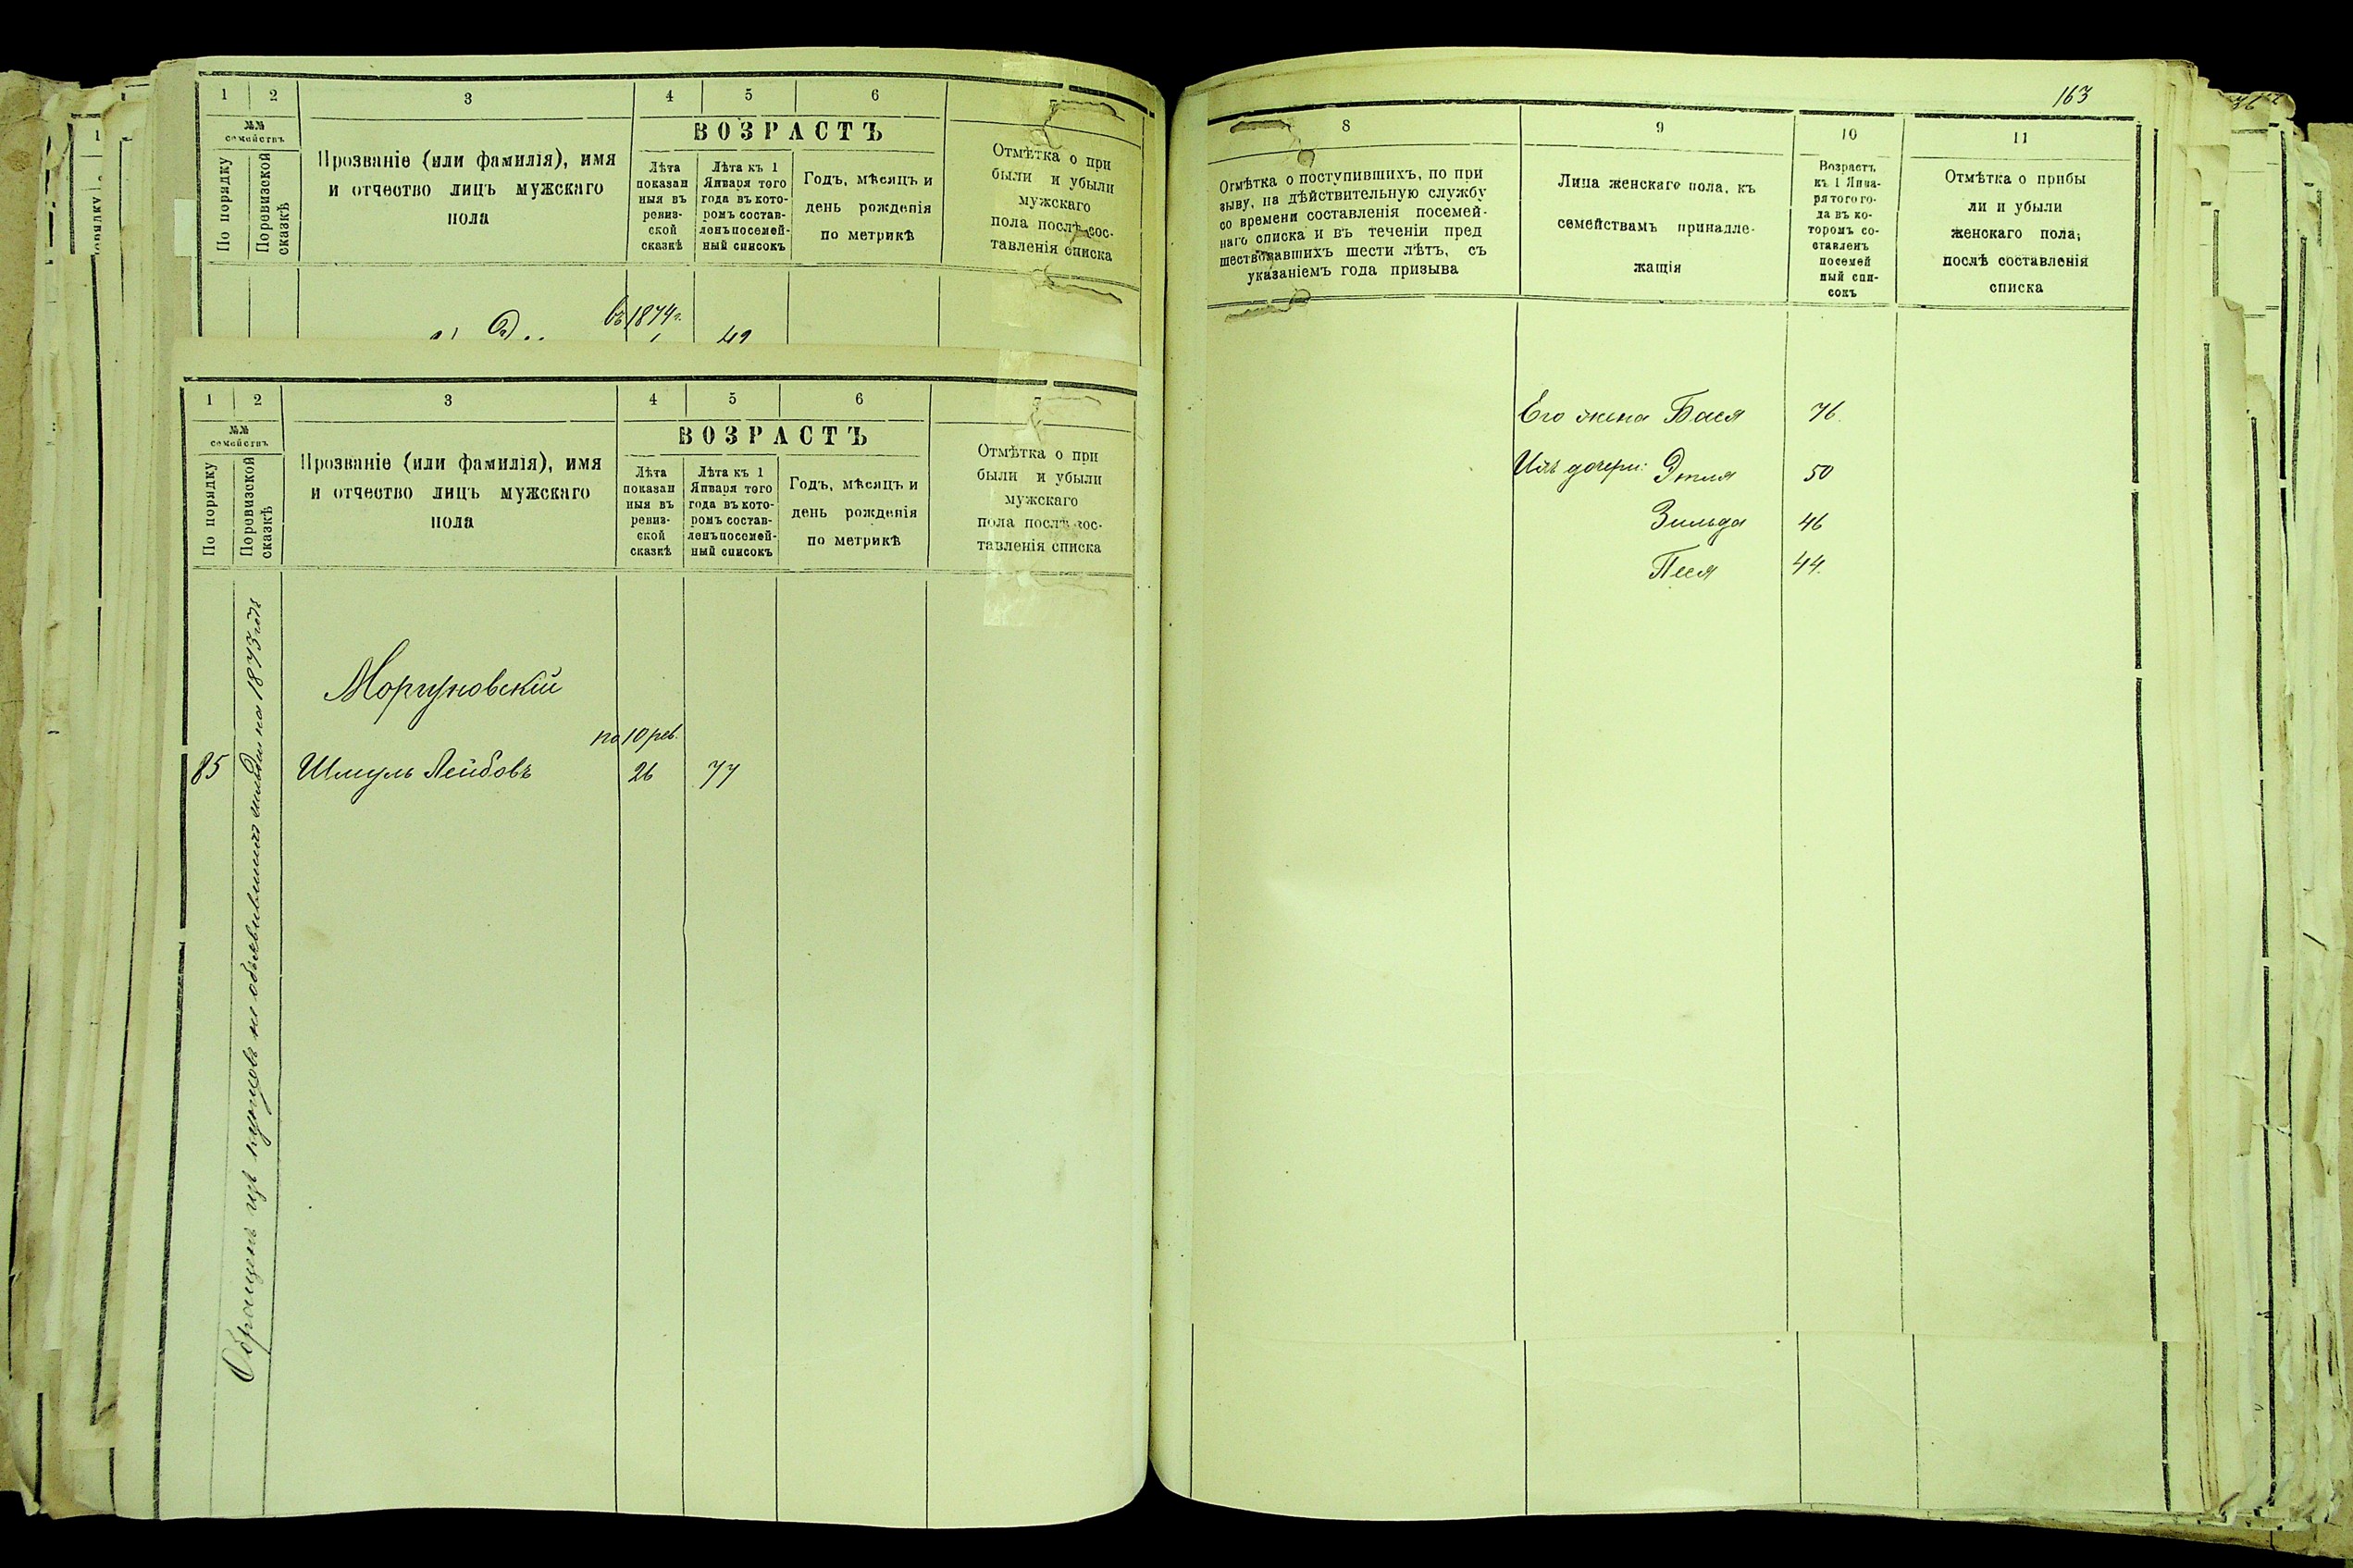 1 2 3 4 5 6
№№ семействъ
По порядку
По ревизской сказкѣ
Прозваніе (или фамилія), имя
и отчество лицъ мужскаго
пола
ВОЗРАСТЪ
Лѣта
показан
ныя въ
ревиз-
ской
сказкѣ
Лѣта къ 1
Января того
года въ кото-
ромъ состав-
ленъ посемей-
ный списокъ
Годъ, мѣсяцъ и
день рожденія
по метрикѣ
Отмѣтка о при
были и убыли
мужскаго
пола послѣ сос-
тавленія списка
въ 1874 г.
42
1 2 3 4 5 6 7
№№ семействъ
По порядку
По ревизской сказкѣ
Прозваніе (или фамилія), имя
и отчество лицъ мужскаго
пола
ВОЗРАСТЪ
Лѣта
показан
ныя въ
ревиз-
ской
сказкѣ
Лѣта къ 1
Января того
года въ кото-
ромъ состав-
ленъ посемей-
ный списокъ
Годъ, мѣсяцъ и
день рожденія
по метрикѣ
Отмѣтка о при
были и убыли
мужскаго
пола послѣ сос-
тавленія списка
Обращенъ изъ купцовъ не объявившихъ на 1873 годъ
Моргуновскій
по 10 рев.
85 Шмуль Лейбовъ 26 77
163
8 9 10 11
Отмѣтка о поступившихъ, по при
зыву, на дѣйствительную службу
со времени составленія посемей-
наго списка и въ теченіи пред
шествовавшихъ шести лѣтъ, съ
указаніемъ года призыва
Лица женскаго пола, къ
семействамъ принадле-
жащія
Возрастъ
къ 1 Янва-
ря того го-
да въ ко-
торомъ со-
ставленъ
посемей
ный спи-
сокъ
Отмѣтка о прибы
ли и убыли
женскаго пола,
послѣ составленія
списка
Его жена Бася 76.
Ихъ дочери: Этля 50
Зильда 46
Песя 44.